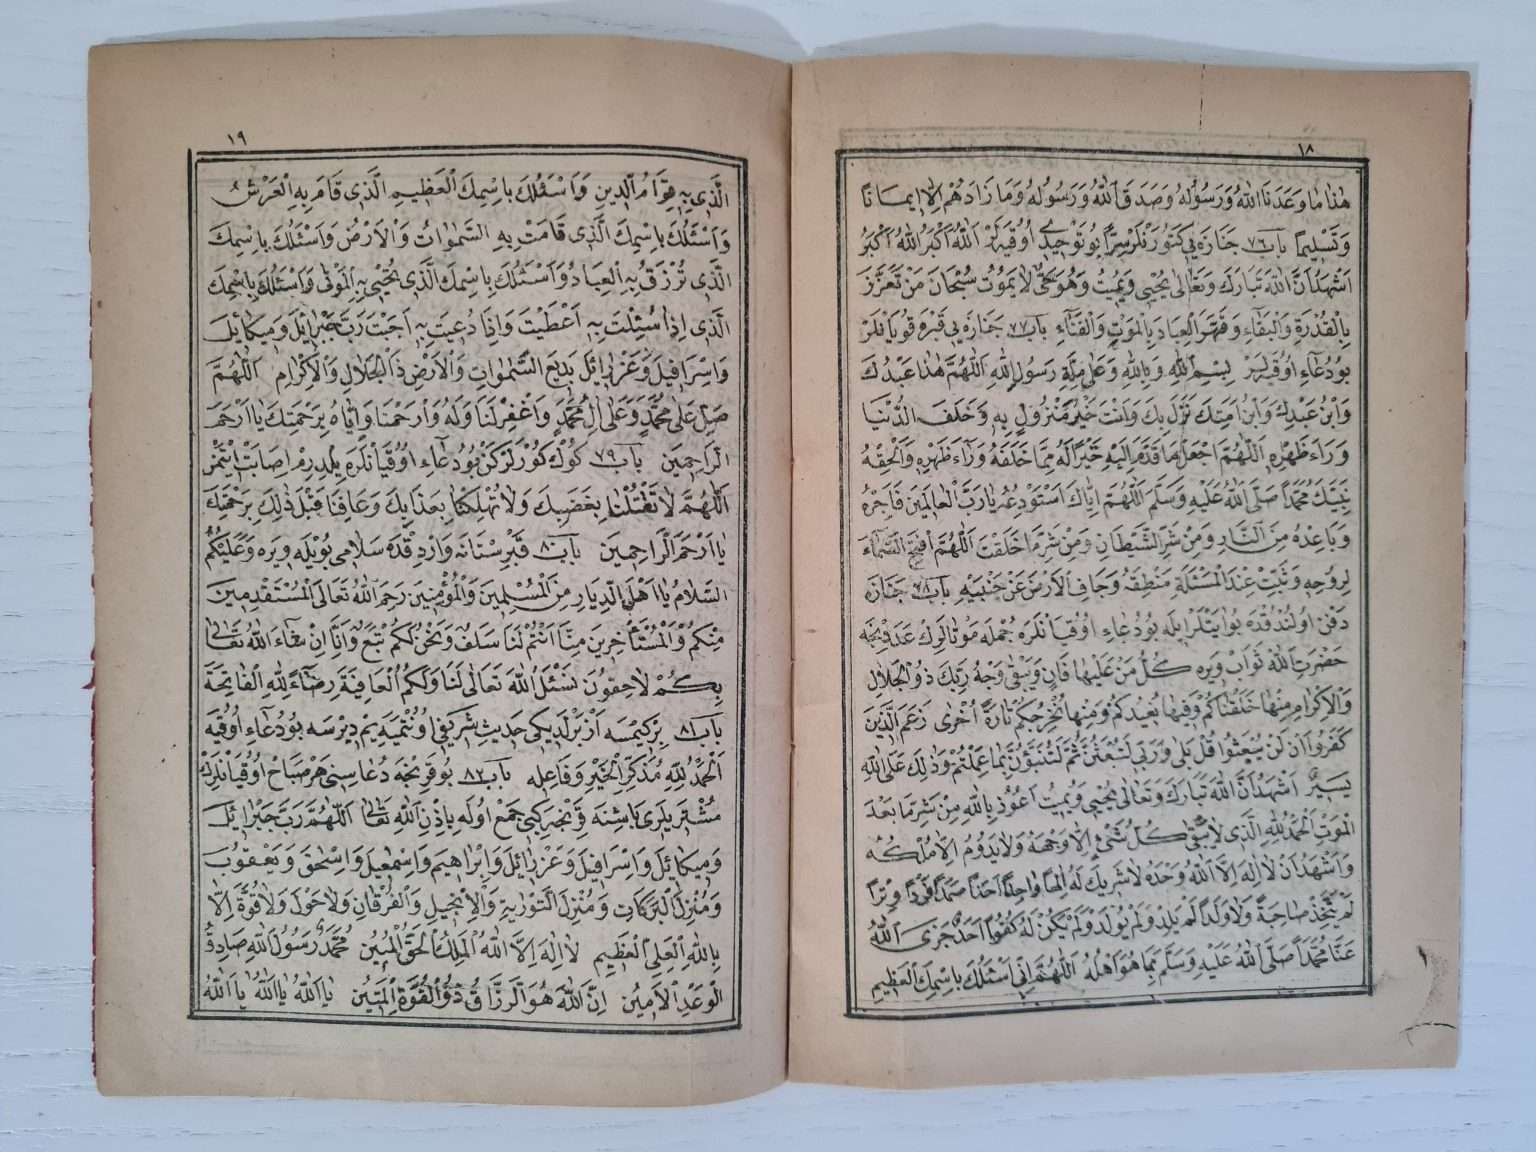 ١٨
هٰذَا مَا وَعَدَنَا اللّٰهُ وَرَسُولُهُ وَصَدَقَ اللّٰهُ وَرَسُولُهُ وَمَا زَادَهُمْ اِلَّا اِيمَانًا
وَتَسْلِيمًا باب ٧٦ جَنَازَه اَللّٰهُ اَكْبَرُ اَللّٰهُ اَكْبَرُ
اَشْهَدُ اَنَّ اللّٰهَ تَبَارَكَ وَتَعَالٰى يُحْيِى وَيُمِيتُ وَهُوَ حَىٌّ لَا يَمُوتُ سُبْحَانَ مَنْ تَعَزَّزَ
بِالْقُدْرَةِ وَالْبَقَاءِ وَقَهَّرَ الْعِبَادَ بِالْمَوْتِ وَالْفَنَاءِ باب ٧٧ جَنَازَه يِى قَبْرَه قُويَانْلَرْ
بُو دُعَاءِ اُوقِيلَرْ بِسْمِ اللّٰهِ وَبِاللّٰهِ وَعَلٰى مِلَّةِ رَسُولِ اللّٰهِ اَللّٰهُمَّ هٰذَا عَبْدُكَ
وَابْنُ عَبْدِكَ وَابْنُ اَمَتِكَ نَزَلَ بِكَ وَاَنْتَ خَيْرُ مَنْزُولٍ بِهِ وَخَلَفَ الدُّنْيَا
وَرَاءَ ظَهْرِهِ اَللّٰهُمَّ اجْعَلْ مَا قَدَّمَ اِلَيْهِ خَيْرًا لَهُ مِمَّا خَلَفَهُ وَرَاءَ ظَهْرِهِ وَالْحِقْهُ
نَبِيَّكَ مُحَمَّدًا صَلَّى اللّٰهُ عَلَيْهِ وَسَلَّمَ اَللّٰهُمَّ اِيَّاكَ اَسْتَوْدِعُهُ يَا رَبَّ الْعَالَمِينَ فَاَجِرْهُ
وَبَاعِدْهُ مِنَ النَّارِ وَمِنْ شَرِّ الشَّيْطَانِ وَمِنْ شَرِّ مَا خَلَقْتَ اَللّٰهُمَّ افْتَحِ السَّمَاءَ
لِرُوحِهِ وَثَبِّتْ عِنْدَ الْمَسْئَلَةِ مَنْطِقَهُ وَجَافِ الْاَرْضَ عَنْ جَنْبَيْهِ باب ٧٨ جَنَازَه
دَفْنْ اُولُنْدُقْدَه بُو اٰيَتْلَرْ اِيلَه بُو دُعَاءِ اُوقُيَانْلَرَه جُمْلَه مَوْتَالَرِكْ عَدَدِنْجَه
حَضْرَتِ اللّٰه ثَوَابْ وِيرَه كُلُّ مَنْ عَلَيْهَا فَانٍ وَيَبْقٰى وَجْهُ رَبِّكَ ذُو الْجَلَالِ
وَالْاِكْرَامِ مِنْهَا خَلَقْنَاكُمْ وَفِيهَا نُعِيدُكُمْ وَمِنْهَا نُخْرِجُكُمْ تَارَةً اُخْرٰى زَعَمَ الَّذِينَ
كَفَرُوا اَنْ لَنْ يُبْعَثُوا قُلْ بَلٰى وَرَبِّى لَتُبْعَثُنَّ ثُمَّ لَتُنَبَّؤُنَّ بِمَا عَمِلْتُمْ وَذٰلِكَ عَلَى اللّٰهِ
يَسِيرٌ اَشْهَدُ اَنَّ اللّٰهَ تَبَارَكَ وَتَعَالٰى يُحْيِى وَيُمِيتُ اَعُوذُ بِاللّٰهِ مِنْ شَرِّ مَا بَعْدَ
الْمَوْتِ اَلْحَمْدُ لِلّٰهِ الَّذِى لَا يَبْقٰى كُلُّ شَىْءٍ اِلَّا وَجْهَهُ وَلَا يَدُومُ اِلَّا مُلْكُهُ
وَاَشْهَدُ اَنْ لَا اِلٰهَ اِلَّا اللّٰهُ وَحْدَهُ لَا شَرِيكَ لَهُ اِلٰهًا وَاحِدًا اَحَدًا صَمَدًا فَرْدًا وِتْرًا
لَمْ يَتَّخِذْ صَاحِبَةً وَلَا وَلَدًا لَمْ يَلِدْ وَلَمْ يُولَدْ وَلَمْ يَكُنْ لَهُ كُفُوًا اَحَدٌ جَزَى اللّٰهُ
عَنَّا مُحَمَّدًا صَلَّى اللّٰهُ عَلَيْهِ وَسَلَّمَ بِمَا هُوَ اَهْلُهُ اَللّٰهُمَّ اِنِّى اَسْئَلُكَ بِاسْمِكَ الْعَظِيمِ
١٩
الَّذِى بِهِ قِوَامُ الدِّينِ وَاَسْئَلُكَ بِاسْمِكَ الْعَظِيمِ الَّذِى قَامَ بِهِ الْعَرْشُ
وَاَسْئَلُكَ بِاسْمِكَ الَّذِى قَامَتْ بِهِ السَّمٰوَاتُ وَالْاَرْضُ وَاَسْئَلُكَ بِاسْمِكَ
الَّذِى تُرْزَقُ بِهِ الْعِبَادُ وَاَسْئَلُكَ بِاسْمِكَ الَّذِى يُحْيِى بِهِ الْمَوْتٰى وَاَسْئَلُكَ بِاسْمِكَ
الَّذِى اِذَا سُئِلْتَ بِهِ اَعْطَيْتَ وَاِذَا دُعِيتَ بِهِ اَجَبْتَ رَبَّ جَبْرَائِلَ وَمِيكَائِلَ
وَاِسْرَافِيلَ وَعَزْرَائِلَ بَدِيعَ السَّمٰوَاتِ وَالْاَرْضِ ذَا الْجَلَالِ وَالْاِكْرَامِ اَللّٰهُمَّ
صَلِّ عَلٰى مُحَمَّدٍ وَعَلٰى اٰلِ مُحَمَّدٍ وَاغْفِرْ لَنَا وَلَهُ وَارْحَمْنَا وَاِيَّاهُ بِرَحْمَتِكَ يَا اَرْحَمَ
الرَّاحِمِينَ باب ٧٩ كُوكْ كُورْلَرْكَنْ بُو دُعَاءِ اُوقُيَانْلَرَه يِلْدِرِمْ اِصَابَتْ اِيتْمَزْ
اَللّٰهُمَّ لَا تَقْتُلْنَا بِغَضَبِكَ وَلَا تُهْلِكْنَا بِعَذَابِكَ وَعَافِنَا قَبْلَ ذٰلِكَ بِرَحْمَتِكَ
يَا اَرْحَمَ الرَّاحِمِينَ باب ٨٠ قَبْرِسْتَانَه وَارْدِقْدَه سَلَامِى بُويْلَه وِيرَه وَعَلَيْكُمُ
السَّلَامُ يَا اَهْلَ الدِّيَارِ مِنَ الْمُسْلِمِينَ وَالْمُؤْمِنِينَ رَحِمَ اللّٰهُ تَعَالَى الْمُسْتَقْدِمِينَ
مِنْكُمْ وَالْمُسْتَأْخِرِينَ مِنَّا اَنْتُمْ لَنَا سَلَفٌ وَنَحْنُ لَكُمْ تَبَعٌ وَاِنَّا اِنْ شَاءَ اللّٰهُ تَعَالٰى
بِكُمْ لَاحِقُونَ نَسْئَلُ اللّٰهَ تَعَالٰى لَنَا وَلَكُمُ الْعَافِيَةَ رِضَاءً لِلّٰهِ الْفَاتِحَةَ
باب ٨١ بِرْ كِيمْسَه اَزْبَرْلَدِيكِى حَدِيثِ شَرِيفِى اُونُتْمَيَه يِمْ دِيرْسَه بُو دُعَاءِ اُوقِيَه
اَلْحَمْدُ لِلّٰهِ مُذَكِّرِ الْخَيْرِ وَفَاعِلِهِ باب ٨٢ دُعَاسِنِى هَرْ صَبَاحْ اُوقُيَانْلَرِكْ
مُشْتَرِيلَرِى بَاشِنَه جَمْعْ اُولَه بِاِذْنِ اللّٰهِ تَعَالٰى اَللّٰهُمَّ رَبَّ جَبْرَائِلَ
وَمِيكَائِلَ وَاِسْرَافِيلَ وَعَزْرَائِلَ وَاِبْرَاهِيمَ وَاِسْمٰعِيلَ وَاِسْحٰقَ وَيَعْقُوبَ
وَمُنْزِلَ الْبَرَكَاتِ وَمُنْزِلَ التَّوْرٰيةِ وَالْاِنْجِيلِ وَالْفُرْقَانِ وَلَا حَوْلَ وَلَا قُوَّةَ اِلَّا
بِاللّٰهِ الْعَلِىِّ الْعَظِيمِ لَا اِلٰهَ اِلَّا اللّٰهُ الْمَلِكُ الْحَقُّ الْمُبِينُ مُحَمَّدٌ رَسُولُ اللّٰهِ صَادِقُ
الْوَعْدِ الْاَمِينُ اِنَّ اللّٰهَ هُوَ الرَّزَّاقُ ذُو الْقُوَّةِ الْمَتِينُ يَا اَللّٰهُ يَا اَللّٰهُ يَا اَللّٰهُ